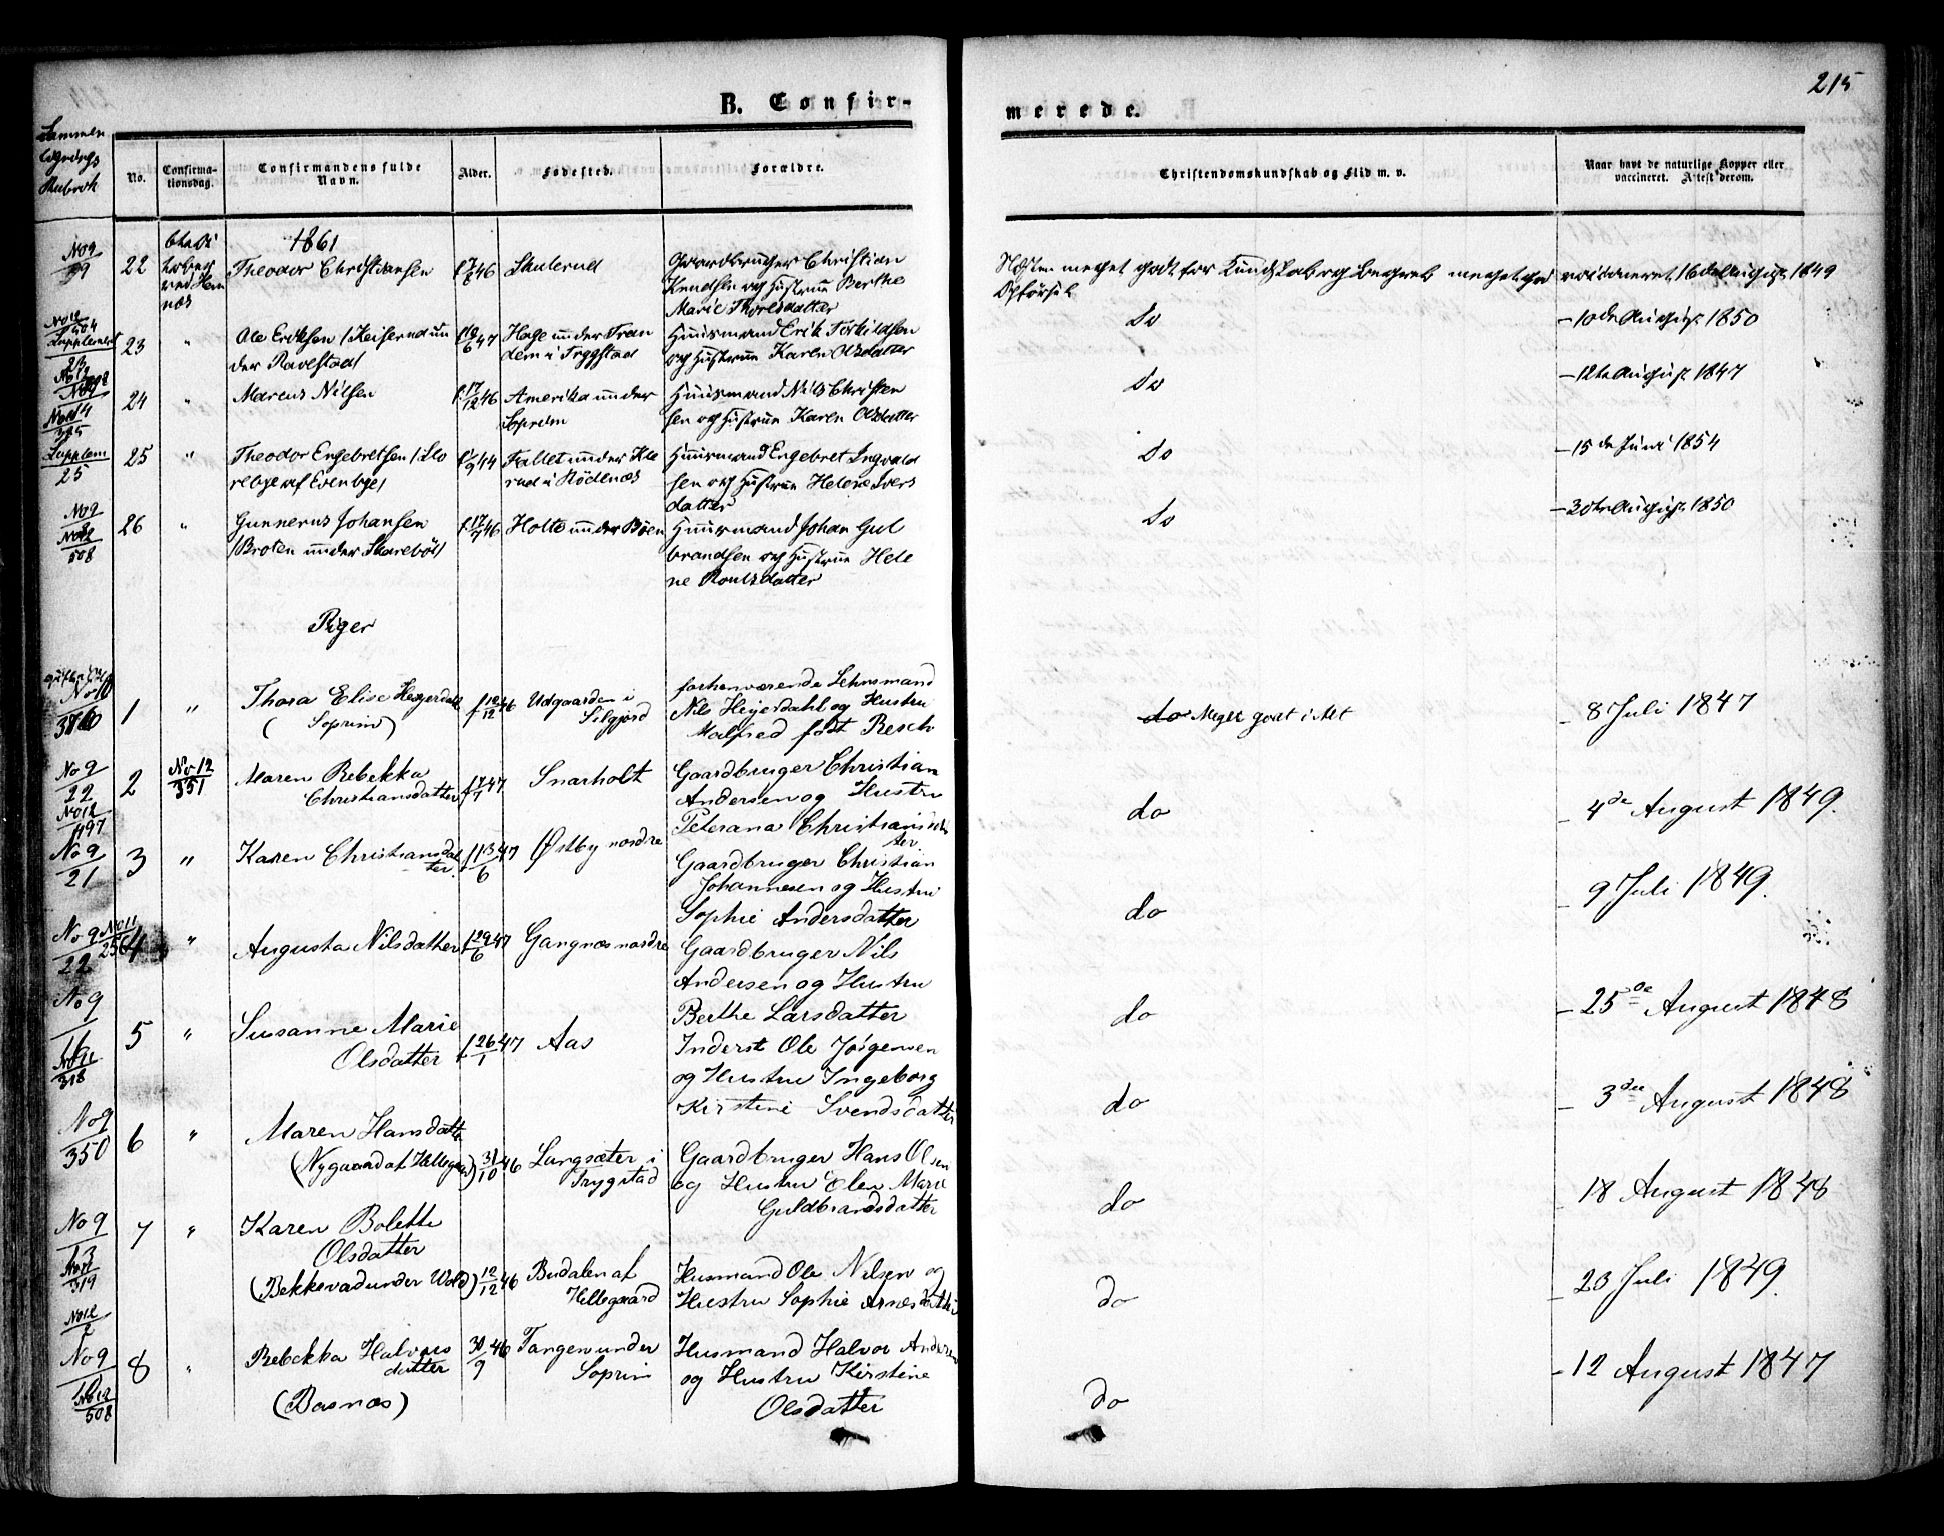 215
B. Confir-
merede.
Sammen
Rubrik
No.
Confirma-
tionsdag.
Confirmandens fulde
Navn.
Alder.
Fødested.
Forældre.
Christendomskundskab og Flid m. v.
Naar havt de naturlige Kopper eller
vaccineret. Attest derom.
1861
No 9
22 Theodor Christiansen 46 Skulerud Gaardbruger Christian
Knudsen og Hustrue Berthe
Marie Thorlsdatter
meget godt for Kundskab og Begreb vaccineret 16de August 1849
23 " Ole Eriksen / un
der Ravelstad /
47 Hage under Tran
dem i Tryggstad
Huusmand Erik Torkildsen
og Hustrue Karen Olsdatter
Do
- 10de August 1850
24 " Marcus Nilsen f. 17/12 46 Amerika under
Soprim
Huusmand Nils Christen
sen og Hustrue Karen Olsdatter
Do
- 12te August 1847
Supplem
25
25 " Theodor Engebretsen /
44 Fallet under Kle
rud i Rödenæs
Huusmand Engebret Ingvald
sen og Hustrue Helene Ivers
datter
Do
- 15de Juni 1854
No 9
508
26 " Gunnerus Johansen
/ Broten under Skareböl /
f. 17/7 46 Holte under Böen
Huusmand Johan Gul
brandsen og Hustrue Hele
ne
Do
- 30te August 1850
Piger
No 10
1 " Thora Elise Heyerdahl
( Soprim )
12/12 46 Udgaarden i
Silgjord
forhenværende Lehnsmand
Nils Heyerdahl og Hustru
Malfred født Resch
do Meget godt i Alt
- 8 Juli 1847
No 9
22
No 12
497
2 No 12
351
Maren Rebekka
Christiansdatter
f 17/7 47 Snarholt
Gaardbruger Christian
Andersen og Hustru
Peterana Christiansdat
ter
do
- 4de August 1849.
No 9
21
3 " Karen Christiansdat
ter.
f 13/6 47 Østby nordre
Gaardbruger Christian
Johannesen og Hustru
Sophie Andersdatter
do
- 9 Juli 1849.
No 9
22
No 11
256
4 " Augusta Nilsdatter f 29/6 47 Gangnæs nordre
Gaardbruger Nils
Andersen og Hustru
Berthe Larsdatter
do
- 25de August 1848
No 9
318
5 " Susanne Marie
Olsdatter
f 26/1 47 Aas
Inderst Ole Jørgensen
og Hustru Ingeborg
Kirstine Svendsdatter
do
- 3die August 1848
No 9
350
6 " Maren Hansdatter
(Nygaard af Hellegaard)
31/10 46 Langsæter i
Trygstad
Gaardbruger Hans Olsen
og Hustru Elen Marie
Guldbrandsdatter
do
- 18 August 1848
No 9
13
319
7 " Karen Bolette
Olsdatter
(Bekkevad under Wold)
12/12 46 Budalen af
Hellegaard
Husmand Ole Nilsen og
Hustru Sophie Arnesdatter
do
- 20 Juli 1849.
No 12
No 9
508
8 " Rebekka Halvors
datter
(Basnæs)
30/9 46 Tangen under
Soprim
Husmand Halvor Andersen
og Hustru Kirstine
Olsdatter
do
- 12 August 1847